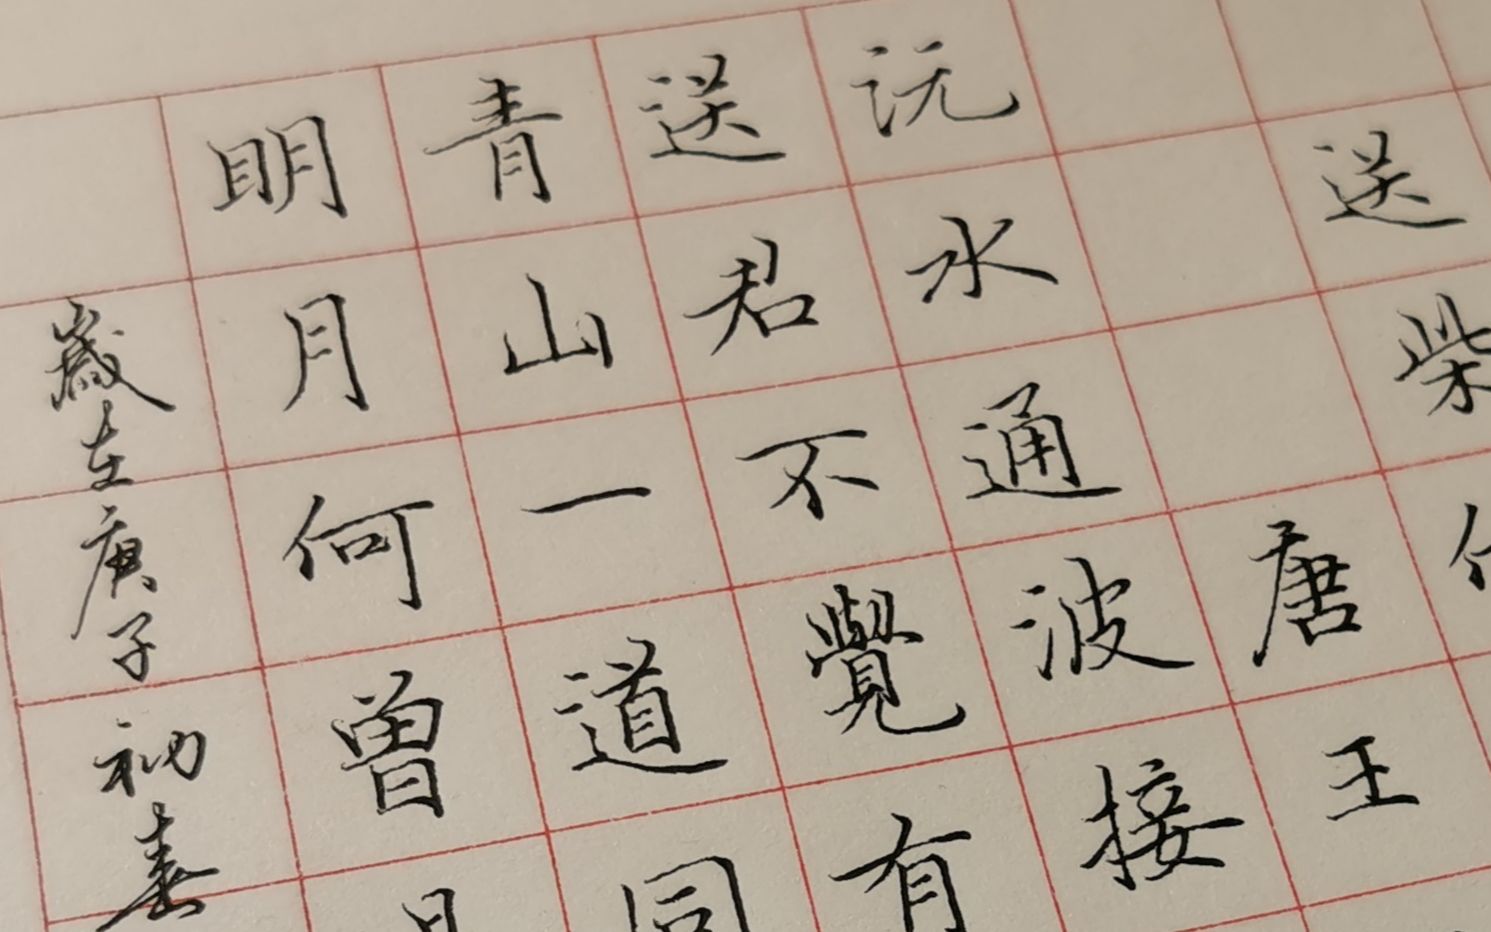 送柴
唐王
沅水通波接
送君不覺有
青山一道同
明月何曾
歲在庚子初春